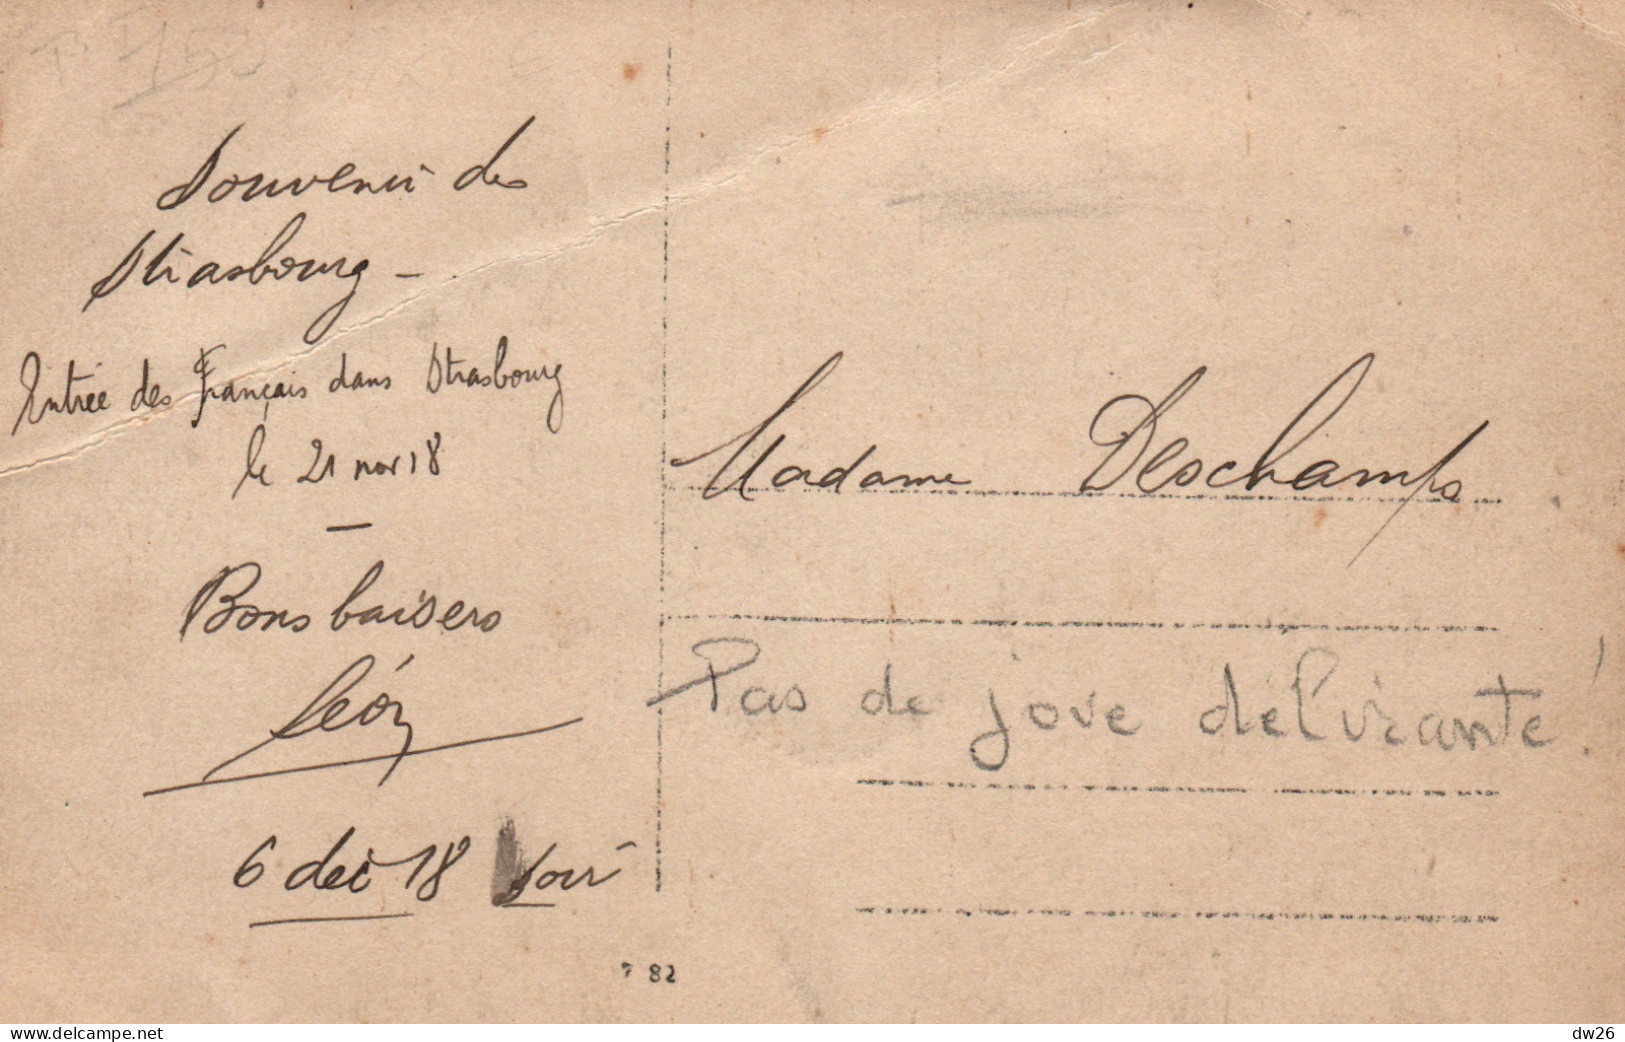 Souvenir de
Strasbourg -
Entrée des Français dans Strasbourg
le 21 nov 18
Bons baisers
Léon
6 dec 18 soir
Madame Deschamps
Pas de jove délirante !
7 82
www.delcampe.net
dw26